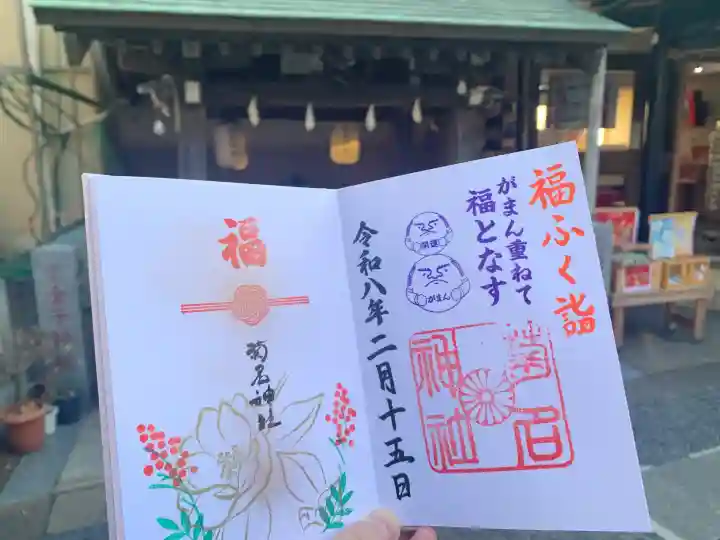 福ふく詣
がまん重ねて
福となす
開運
がまん
菊名
神社
令和八年二月十五日
福
菊名神社